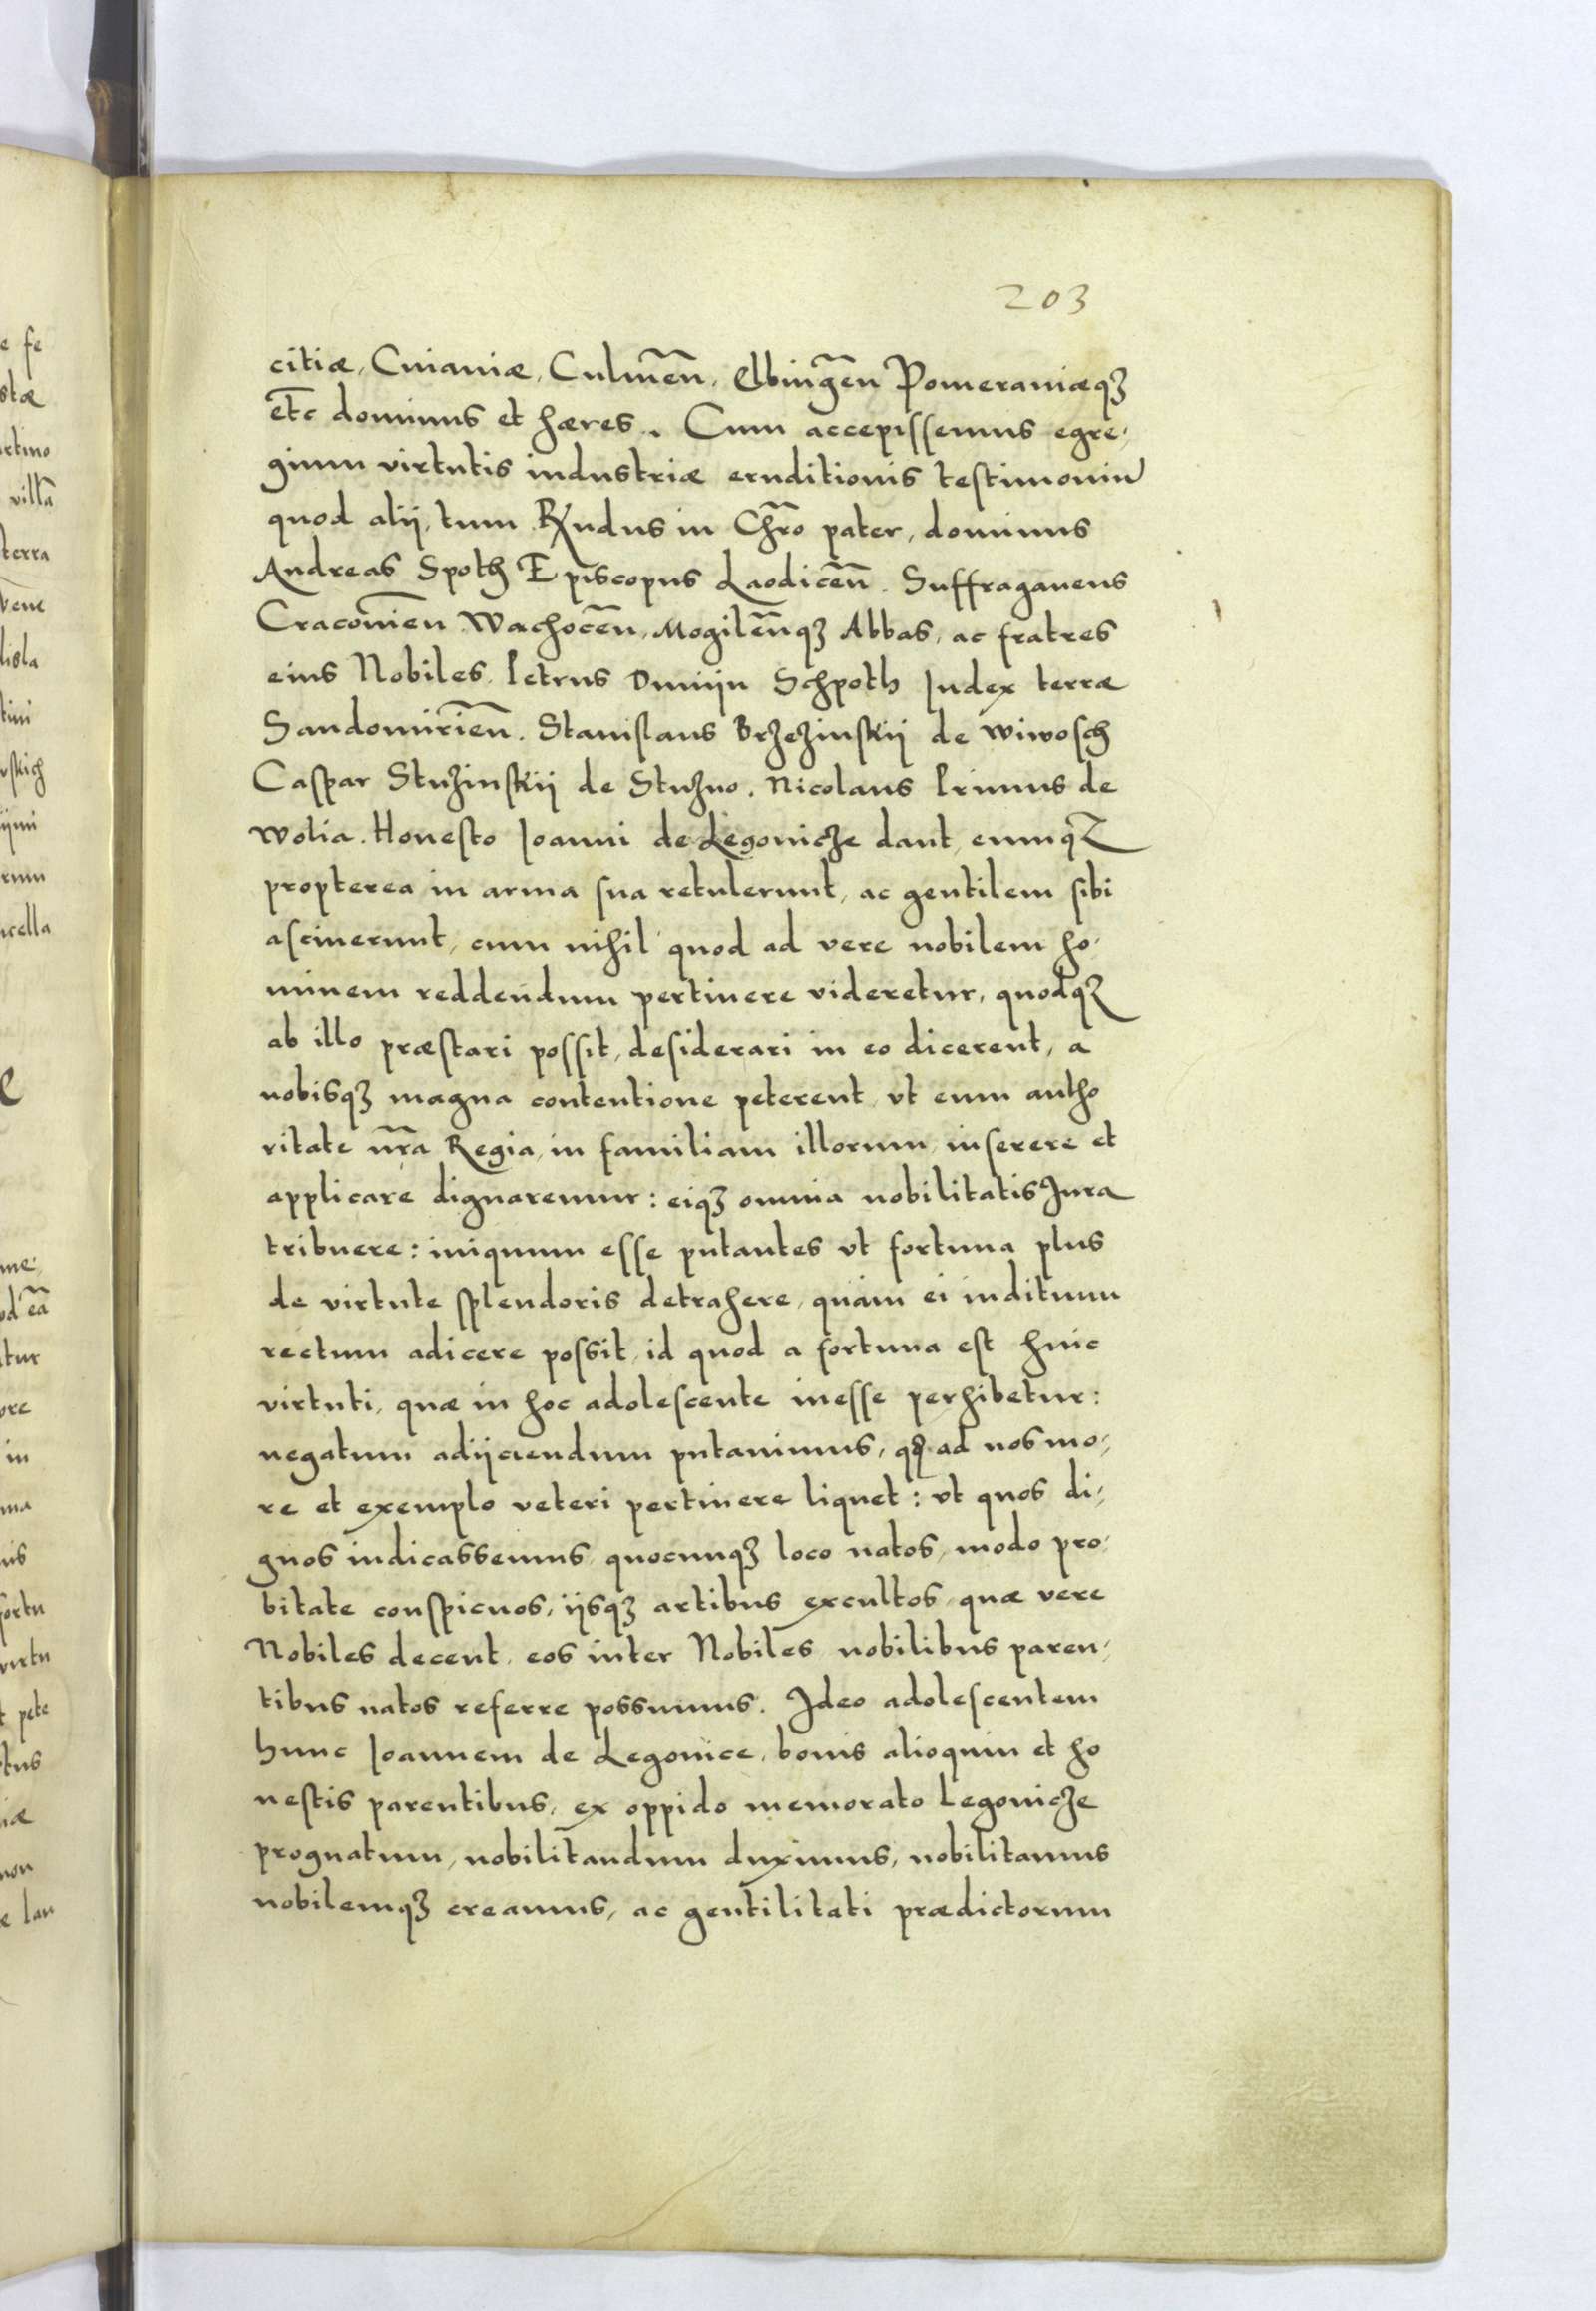 203
citiæ, Cuiaviæ, Culmen̄, Elbingen̄ Pomeraniæqꝫ
etc̄ dominus et hæres. Cum accepissemus egre,
gium virtutis industriæ eruditionis testimoniū
quod alij, tum Rx̄ndus in Chr̄o pater, dominus
Andreas Spoth Episcopus Laodicen̄. Suffraganeus
Cracovien̄ Wachocen̄, Mogilen̄qꝫ Abbas, ac fratres
eius Nobiles. Petrus Dunijn Schpoth Iudex terræ
Sandomirien̄. Stanislaus Brzezinskij de Wiwosch
Caspar Stuzinskij de Stuzno. Nicolaus Primus de
wolia. Honesto Ioanni de Legonicze dant, eumqꝫ
propterea in arma sua retulerunt, ac gentilem sibi
asciverunt, cum nihil quod ad vere nobilem ho,
minem reddendum pertinere videretur, quodqꝫ
ab illo præstari possit, desiderari in eo dicerent, a
nobisqꝫ magna contentione peterent, vt eum autho
ritate nr̄a Regia, in familiam illorum, inserere et
applicare dignaremur: eiqꝫ omnia nobilitatis Iura
tribuere: iniquum esse putantes vt fortuna plus
de virtute splendoris detrahere, quàm ei inditum
rectum adicere possit, id quod a fortuna est huic
virtuti, quæ in hoc adolescente inesse perhibetur:
negatum adijciendum putavimus, qđ ad nos mo,
re et exemplo veteri pertinere liquet: vt quos di,
gnos iudicassemus, quocunqꝫ loco natos, modo pro,
bitate conspicuos, ijsqꝫ artibus excultos, quæ vere
Nobiles decent, eos inter Nobiles nobilibus paren,
tibus natos referre possumus. Ideo adolescentem
hunc Ioannem de Legonice, bonis alioquin et ho
nestis parentibus, ex oppido memorato Legonicze
prognatum, nobilitandum duximus, nobilitamus
nobilemqꝫ creamus, ac gentilitati prædictorum